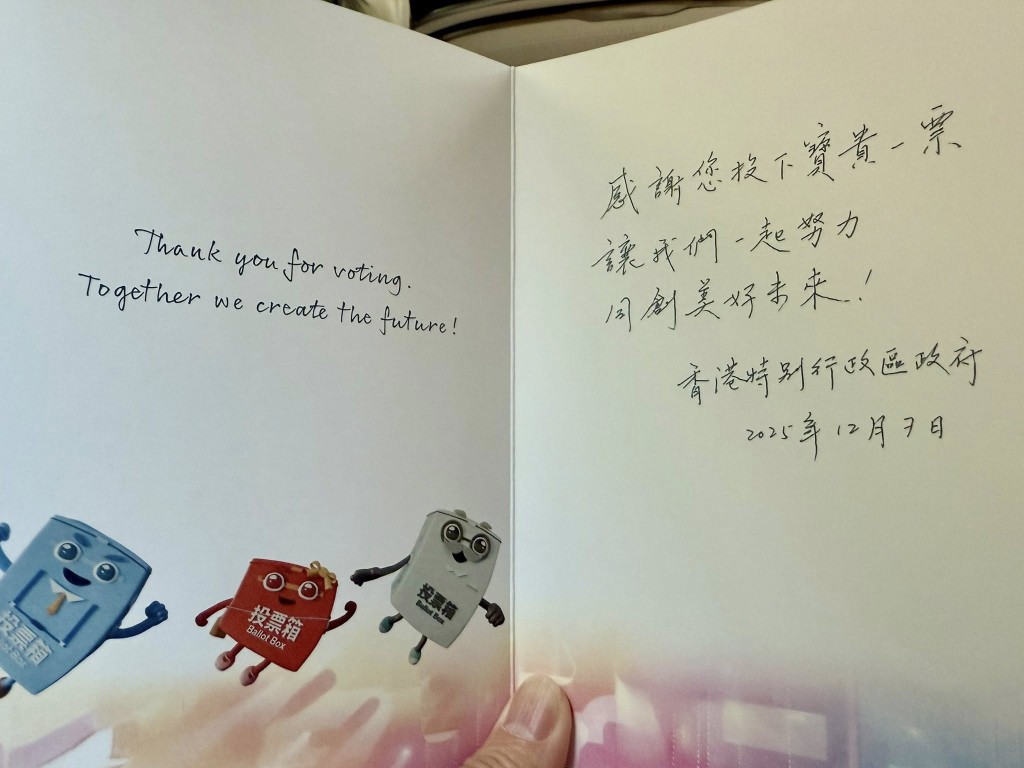 Thank you for voting.
Together we create the future!
投票箱
Ballot Box
投票箱
Ballot Box
投票箱
Ballot Box
感謝您投下寶貴一票
讓我們一起努力
同創美好未來！
香港特別行政區政府
2025年12月7日